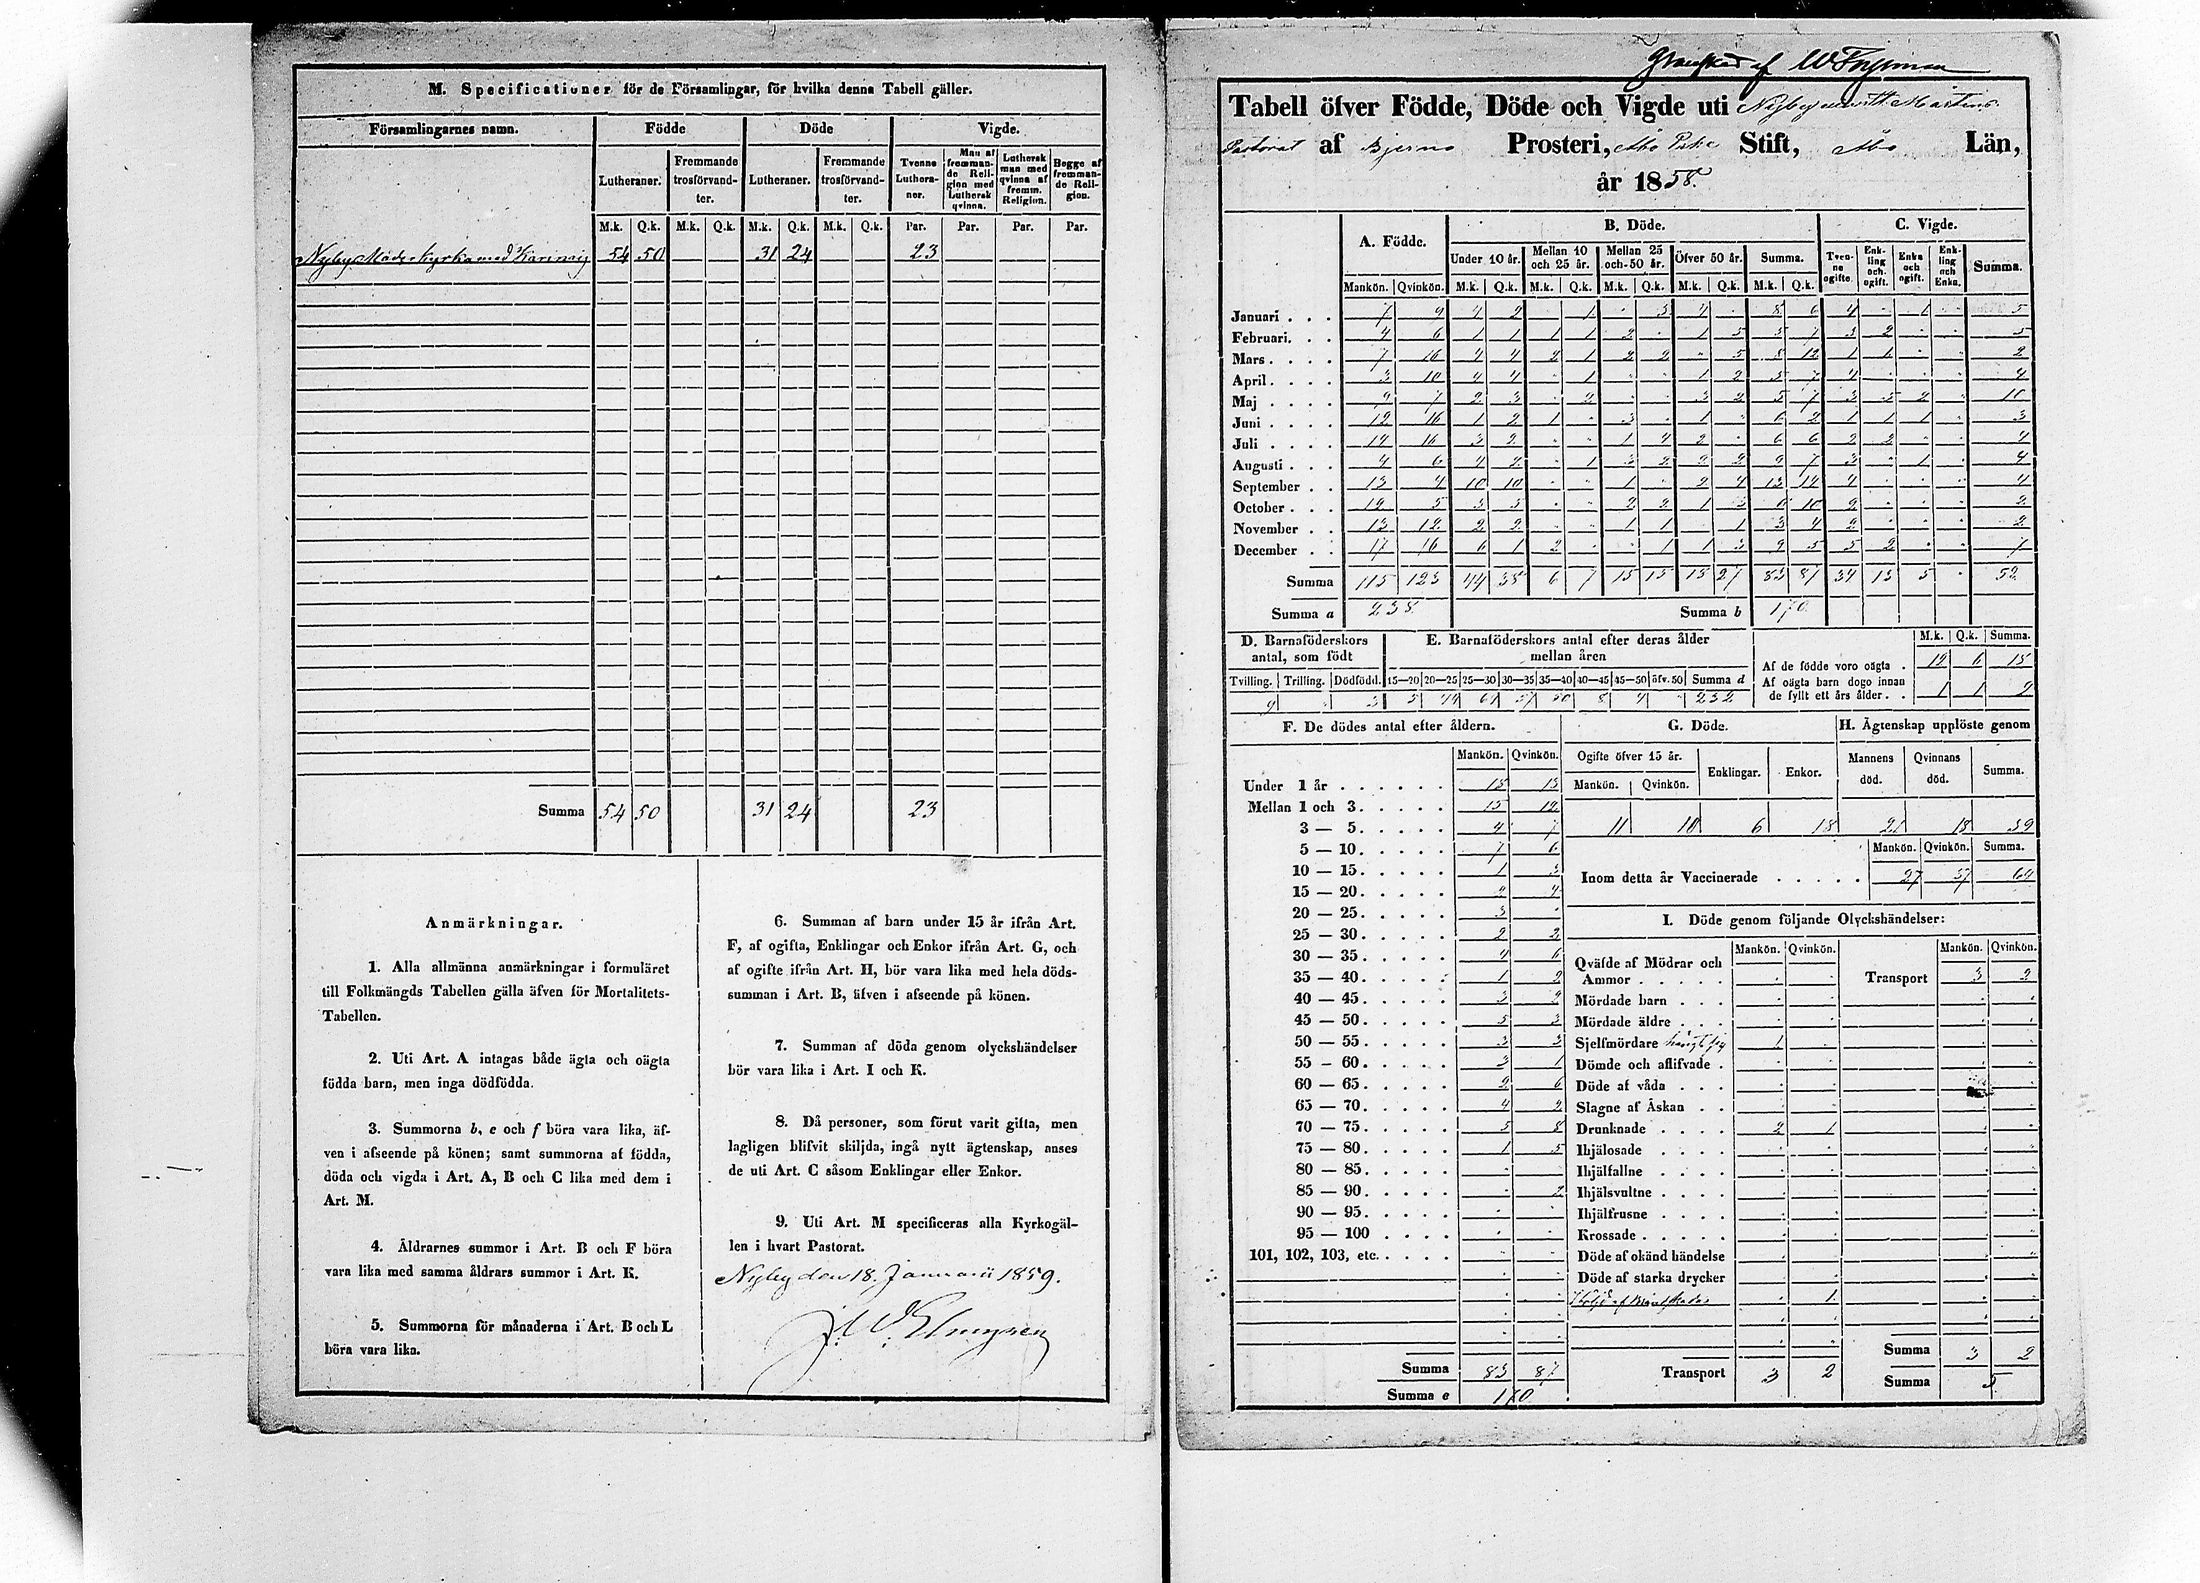 M. Specificationer för de Församlingar, för hvilka denna Tabell gäller.
Församlingarnes namn. Födde Döde Vigde.
Lutheraner. Fremmande trosförvandter. Lutheraner. Fremmande trosförvandter. Tvenne Lutheraner. Man af fremmande Religion med Luthersk qvinna. Luthersk man med qvinna af fremm. Religion. Begge af fremmande Religion.
M.k. Q.k. M.k. Q.k. M.k. Q.k. M.k. Q.k. Par. Par. Par. Par.
Nyby med 54 50 31 24 23
Summa 54 50 31 24 23
Anmärkningar.
1. Alla allmänna anmärkningar i formuläret
till Folkmängds Tabellen gälla äfven för Mortalitets-
Tabellen.
2. Uti Art. A intagas både ägta och oägta
födda barn, men inga dödfödda.
3. Summorna b, e och f böra vara lika, äf-
ven i afseende på könen; samt summorna af födda,
döda och vigda i Art. A, B och C lika med dem i
Art. M.
4. Åldrarnes summor i Art. B och F böra
vara lika med samma åldrars summor i Art. K.
5. Summorna för månaderna i Art. B och L
böra vara lika.
6. Summan af barn under 15 år ifrån Art.
F, af ogifta, Enklingar och Enkor ifrån Art. G, och
af ogifte ifrån Art. H, bör vara lika med hela döds-
summan i Art. B, äfven i afseende på könen.
7. Summan af döda genom olyckshändelser
bör vara lika i Art. I och K.
8. Då personer, som förut varit gifta, men
lagligen blifvit skiljda, ingå nytt ägtenskap, anses
de uti Art. C såsom Enklingar eller Enkor.
9. Uti Art. M specificeras alla Kyrkogäl-
len i hvart Pastorat.
Nyby den 18. Januarii 1859.
Granskad af
Tabell öfver Födde, Döde och Vigde uti Nyby
Pastorat af Bjerno Prosteri, Åbo Stift, Åbo Län,
år 1858.
A. Födde. B. Döde. C. Vigde.
Under 10 år. Mellan 10 och 25 år. Mellan 25 och 50 år. Öfver 50 år. Summa. Tvenne ogifte. Enkling och ogift. Enka och ogift. Enkling och Enka. Summa.
Mankön. Qvinkön. M.k. Q.k. M.k. Q.k. M.k. Q.k. M.k. Q.k. M.k. Q.k.
Januari . . . 7 9 4 2 1 3 4 8 6 4 1 5
Februari. . . 4 6 1 1 1 1 2 1 5 5 7 3 2 5
Mars . . . . 7 16 4 4 2 1 2 2 5 8 12 1 1 2
April . . . . 3 10 4 4 1 1 2 5 7 4 4
Maj . . . . 9 7 2 3 2 3 2 5 7 3 5 2 10
Juni . . . . 12 16 1 2 1 3 1 6 2 1 1 1 3
Juli . . . . 14 16 3 2 1 4 2 6 6 2 2 4
Augusti . . . 4 6 4 2 1 3 2 2 2 9 7 3 1 4
September . . 13 4 10 10 1 2 4 13 14 4 4
October . . . 12 5 3 5 2 2 1 3 6 10 2 2
November . . 13 12 2 2 1 1 1 3 4 2 2
December . . 17 16 6 1 2 1 1 3 9 5 5 2 7
Summa 115 123 44 38 6 7 15 15 18 27 83 87 34 13 5 52
Summa a 238. Summa b 170
D. Barnaföderskors antal, som födt E. Barnaföderskors antal efter deras ålder mellan åren
M.k. Q.k. Summa.
Af de födde voro oägta . 12 6 18
Af oägta barn dogo innan
de fyllt ett års ålder . . 1 1 2
Tvilling. Trilling. Dödfödd. 15—20 20—25 25—30 30—35 35—40 40—45 45—50 öfv. 50 Summa d
232
F. De dödes antal efter åldern. G. Döde. H. Ägtenskap upplöste genom
Mankön. Qvinkön. Ogifte öfver 15 år. Enklingar. Enkor. Mannens död. Qvinnans död. Summa.
Mankön. Qvinkön.
11 10 6 18 21 18 39
Under 1 år . . . . . . 18 13
Mellan 1 och 3. . . . . 15 12
3 — 5. . . . . 4 7
5 — 10. . . . . 7 6
10 — 15. . . . . 1 3
15 — 20. . . . . 2 4
20 — 25. . . . . 3
25 — 30. . . . . 2 2
30 — 35. . . . . 4 6
35 — 40. . . . . 1 2
40 — 45. . . . . 3 2
45 — 50. . . . . 5 3
50 — 55. . . . . 3 3
55 – 60. . . . . 3 1
60 — 65. . . . . 2 6
65 — 70. . . . . 4 2
70 — 75. . . . . 5 8
75 — 80. . . . . 1 5
80 — 85. . . . .
85 — 90. . . . . 2
90 — 95. . . . .
95 — 100 . . . .
101, 102, 103, etc. . . . .
Summa 83 87
Summa e 170
Mankön. Qvinkön. Summa.
Inom detta år Vaccinerade . . . . . 27 37 64
I. Döde genom följande Olyckshändelser:
Mankön. Qvinkön. Mankön. Qvinkön.
Qväfde af Mödrar och
Ammor . . . . . Transport 3 2
Mördade barn . . .
Mördade äldre . . .
Sjelfmördare hängt sig 1
Dömde och aflifvade .
Döde af våda . . .
Slagne af Åskan . .
Drunknade . . . . 2 1
Ihjälosade . . . .
Ihjälfallne . . . .
Ihjälsvultne . . . .
Ihjälfrusne . . . .
Krossade . . . . .
Döde af okänd händelse
Döde af starka drycker
af 1
Summa 3 2
Transport 3 2
Summa 5